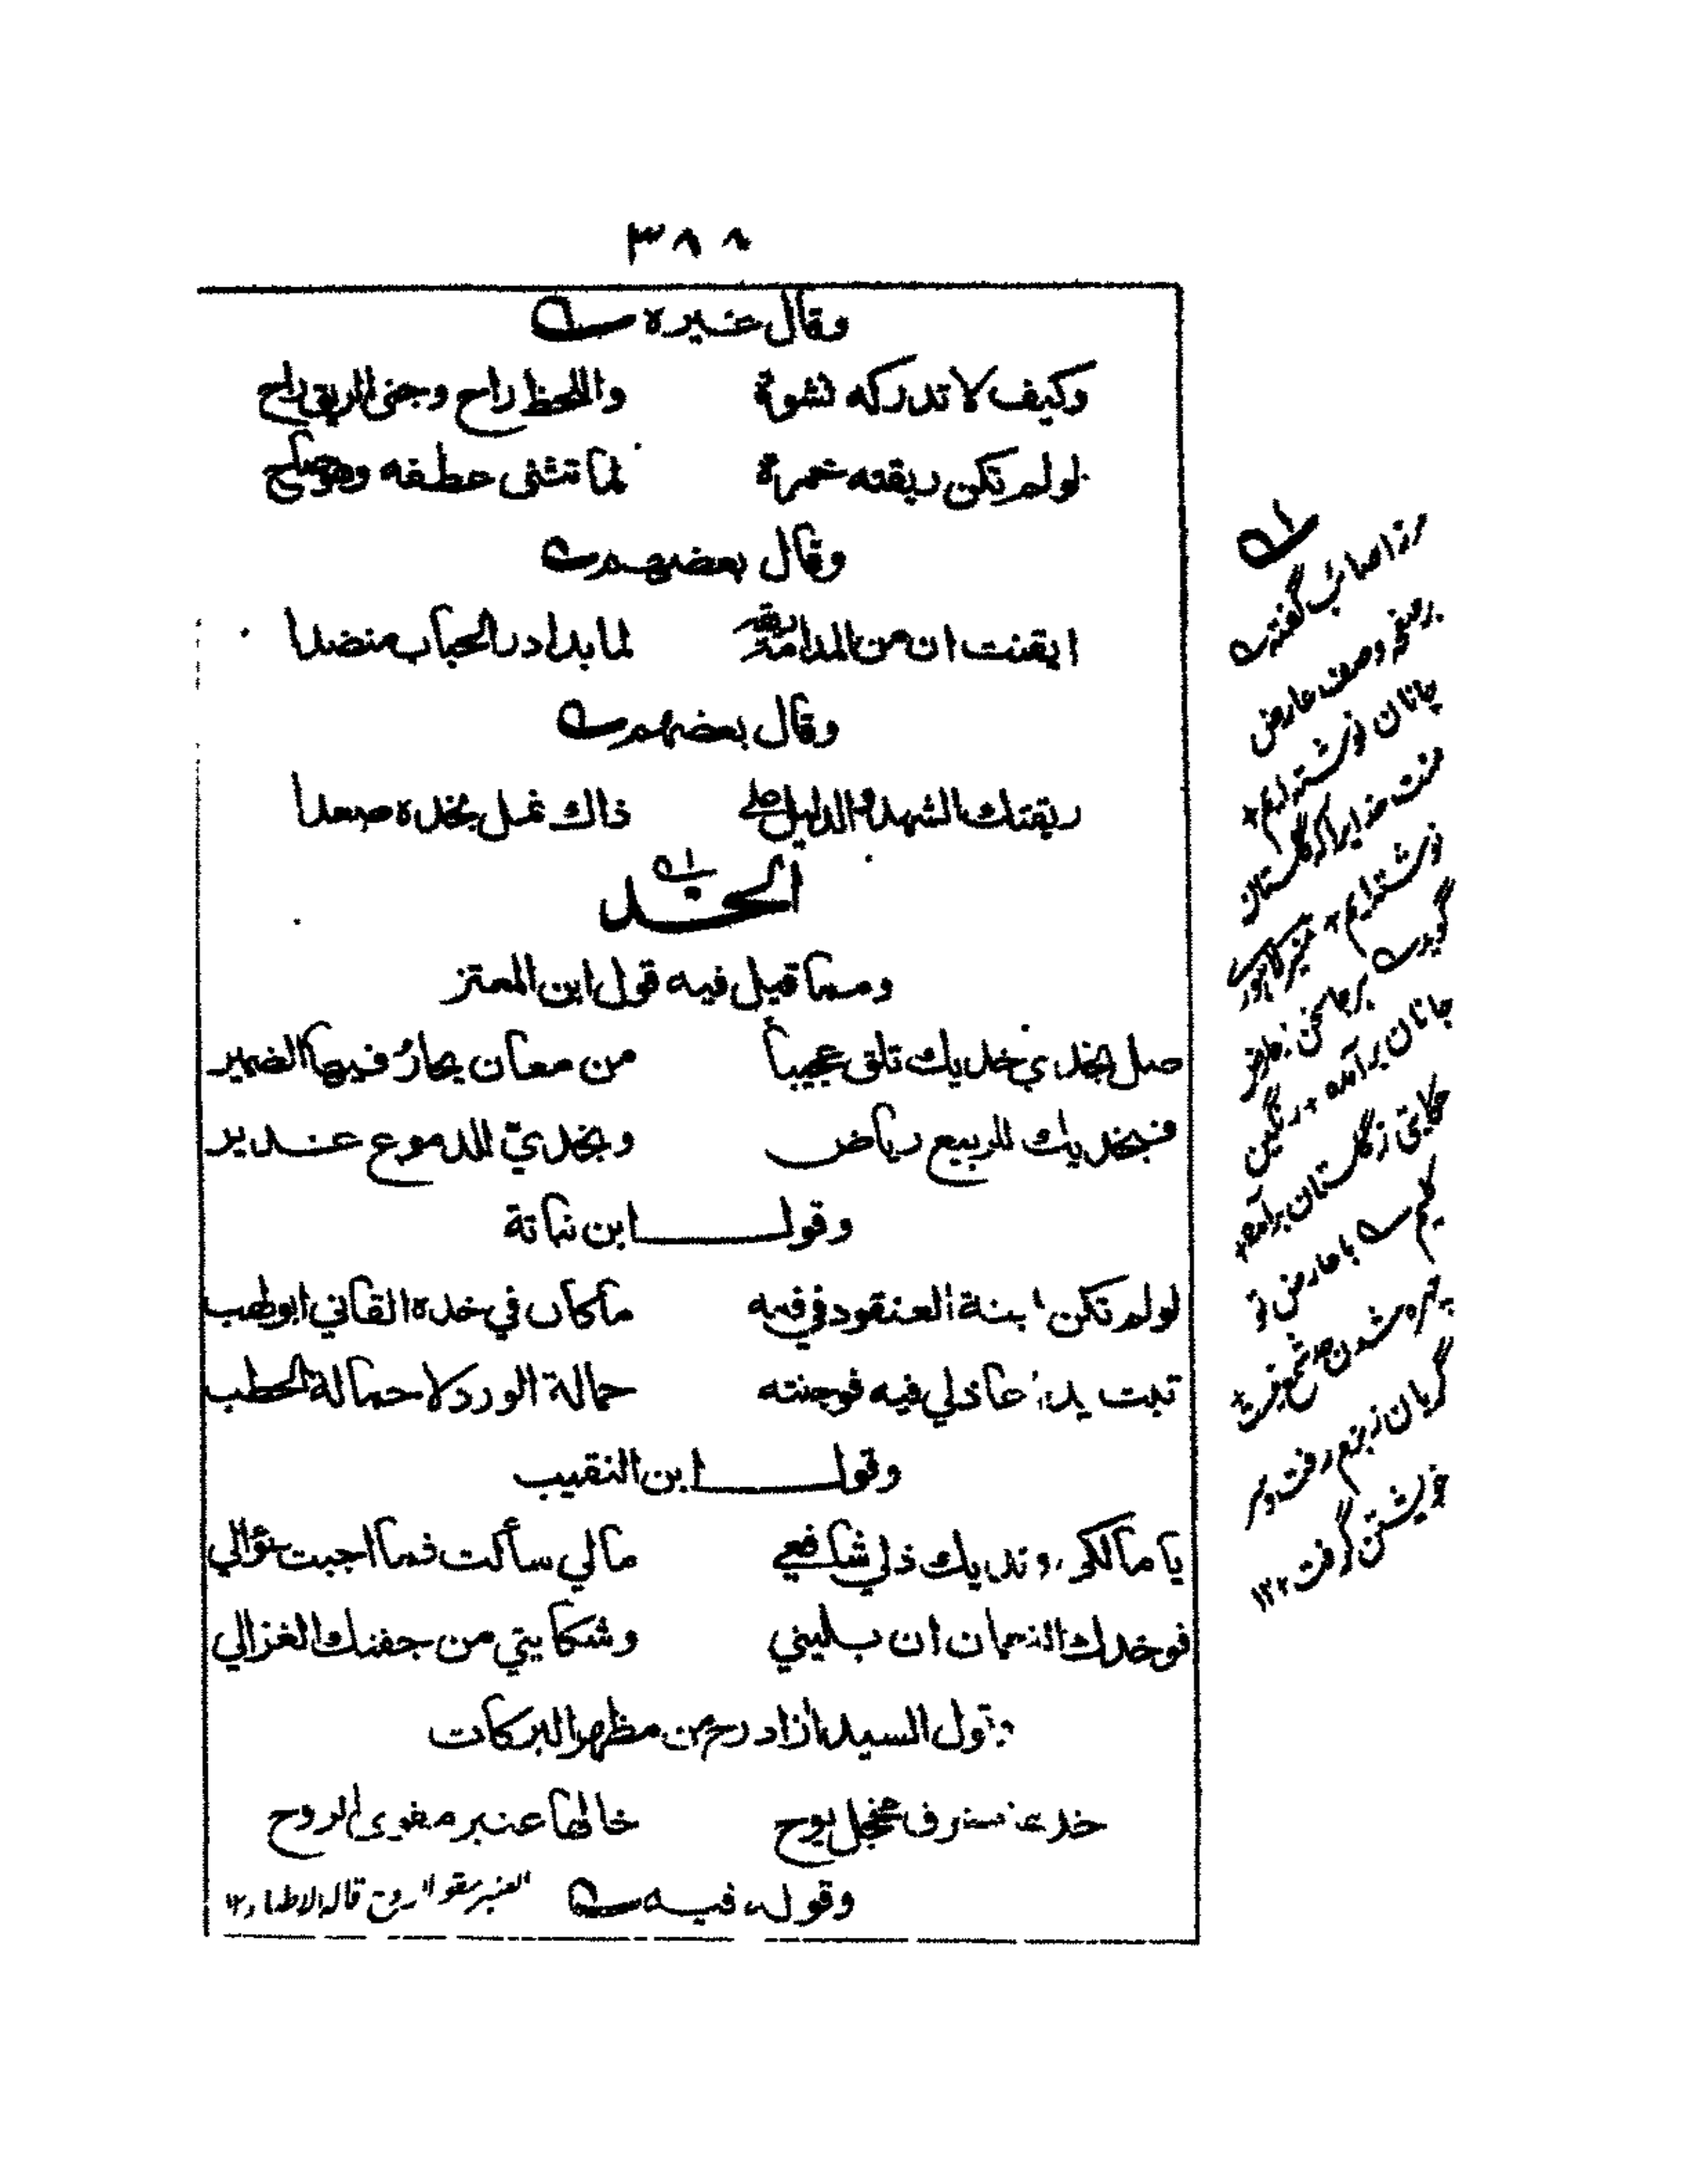 ٣٨٨
وقال غيره
وكيف لا تدركه نشوة واللحظ راح وجنى الريق راح
لو لم تكن ريقته خمرة لما تثنى عطفه وهو صاح
وقال بعضهم
ايقنت ان من المدامة ريقه لما بدا در الحباب منضدا
وقال بعضهم
ريقتك الشهد والدليل على ذاك نمل بخده صعدا
الخد
ومما قيل فيه قول ابن المعتز
صل بخدي خديك تلق عجيبا من معان يحار فيها الضمير
فبخديك للربيع رياض وبخدي للدموع غدير
وقول ابن نباتة
لو لم تكن ابنة العنقود في فمه ما كان في خده القاني ابو لهب
تبت يدا عاذلي فيه فوجنته حمالة الورد لا حمالة الحطب
وقول ابن النقيب
يا مالكي ولديك ذلي شافعي مالي سألت فما اجبت سؤالي
فوخدك النعمان ان بليتي وشكايتي من جفنك الغزالي
وقول السيد ازاد رح من مظهر البركات
خد مخجل يوح خالها عنبر مقوى الروح
وقوله فيه
العنبر مقو الروح قاله الاطباء ١٢
مرزا صائب گفته
بر صفحه وصف عارض
جانان نوشته‌ايم
منت خدايرا كه گلستان
نوشته‌ايم
گويد
جانان برآمده رنگين
حكايتى ز گلستان برآمده
كليم با عارض تو
چهره شدن شمع
گريان ز بزم رفت و سر
خويشتن گرفت ١٢